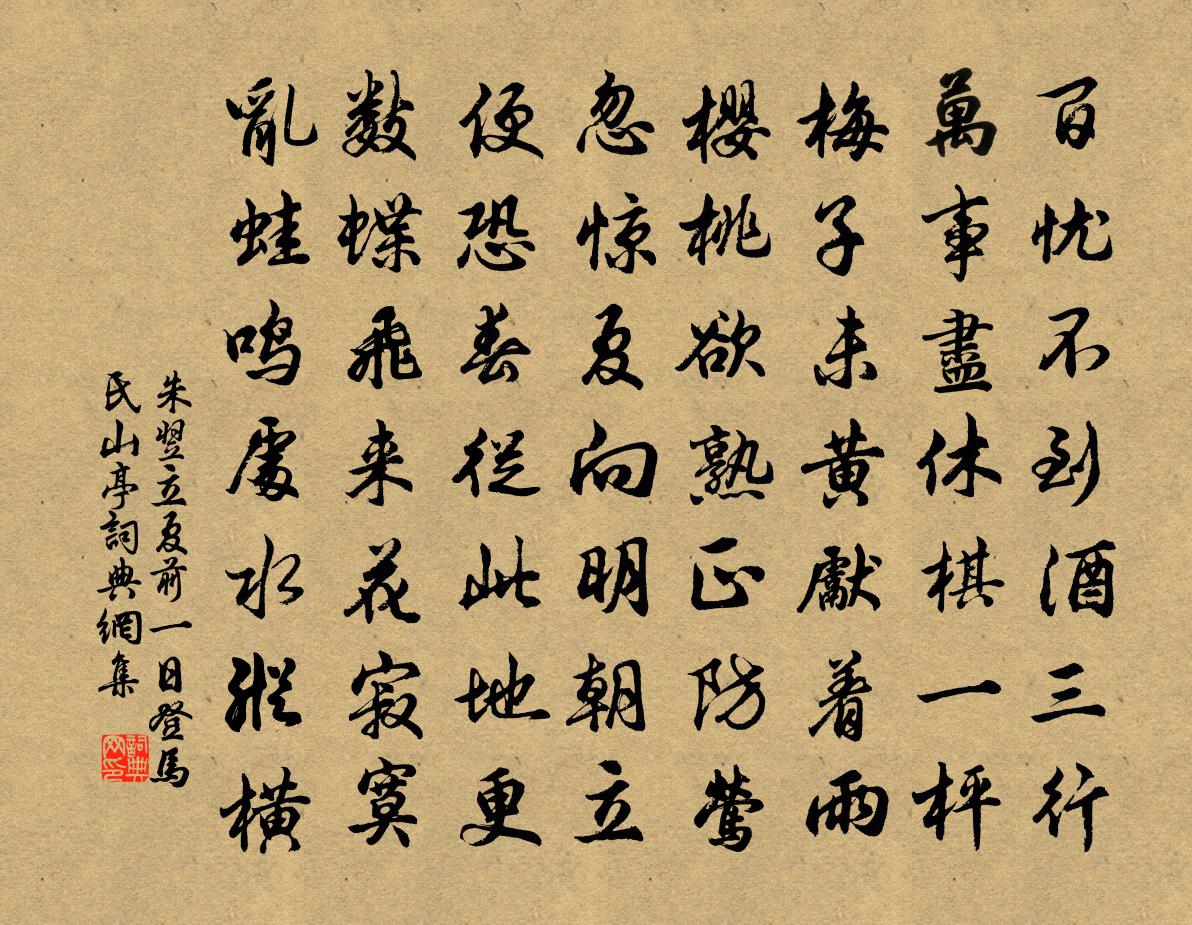 百忧不到酒三行
萬事盡休棋一枰
梅子未黄厭着雨
櫻桃欲熟正防莺
忽惊夏向明朝立
便恐春従此地更
数蝶飛来花寂寞
亂蛙鸣處水縱橫
朱翌立夏前一日登馬
氏山亭詞典網集
詞典网印